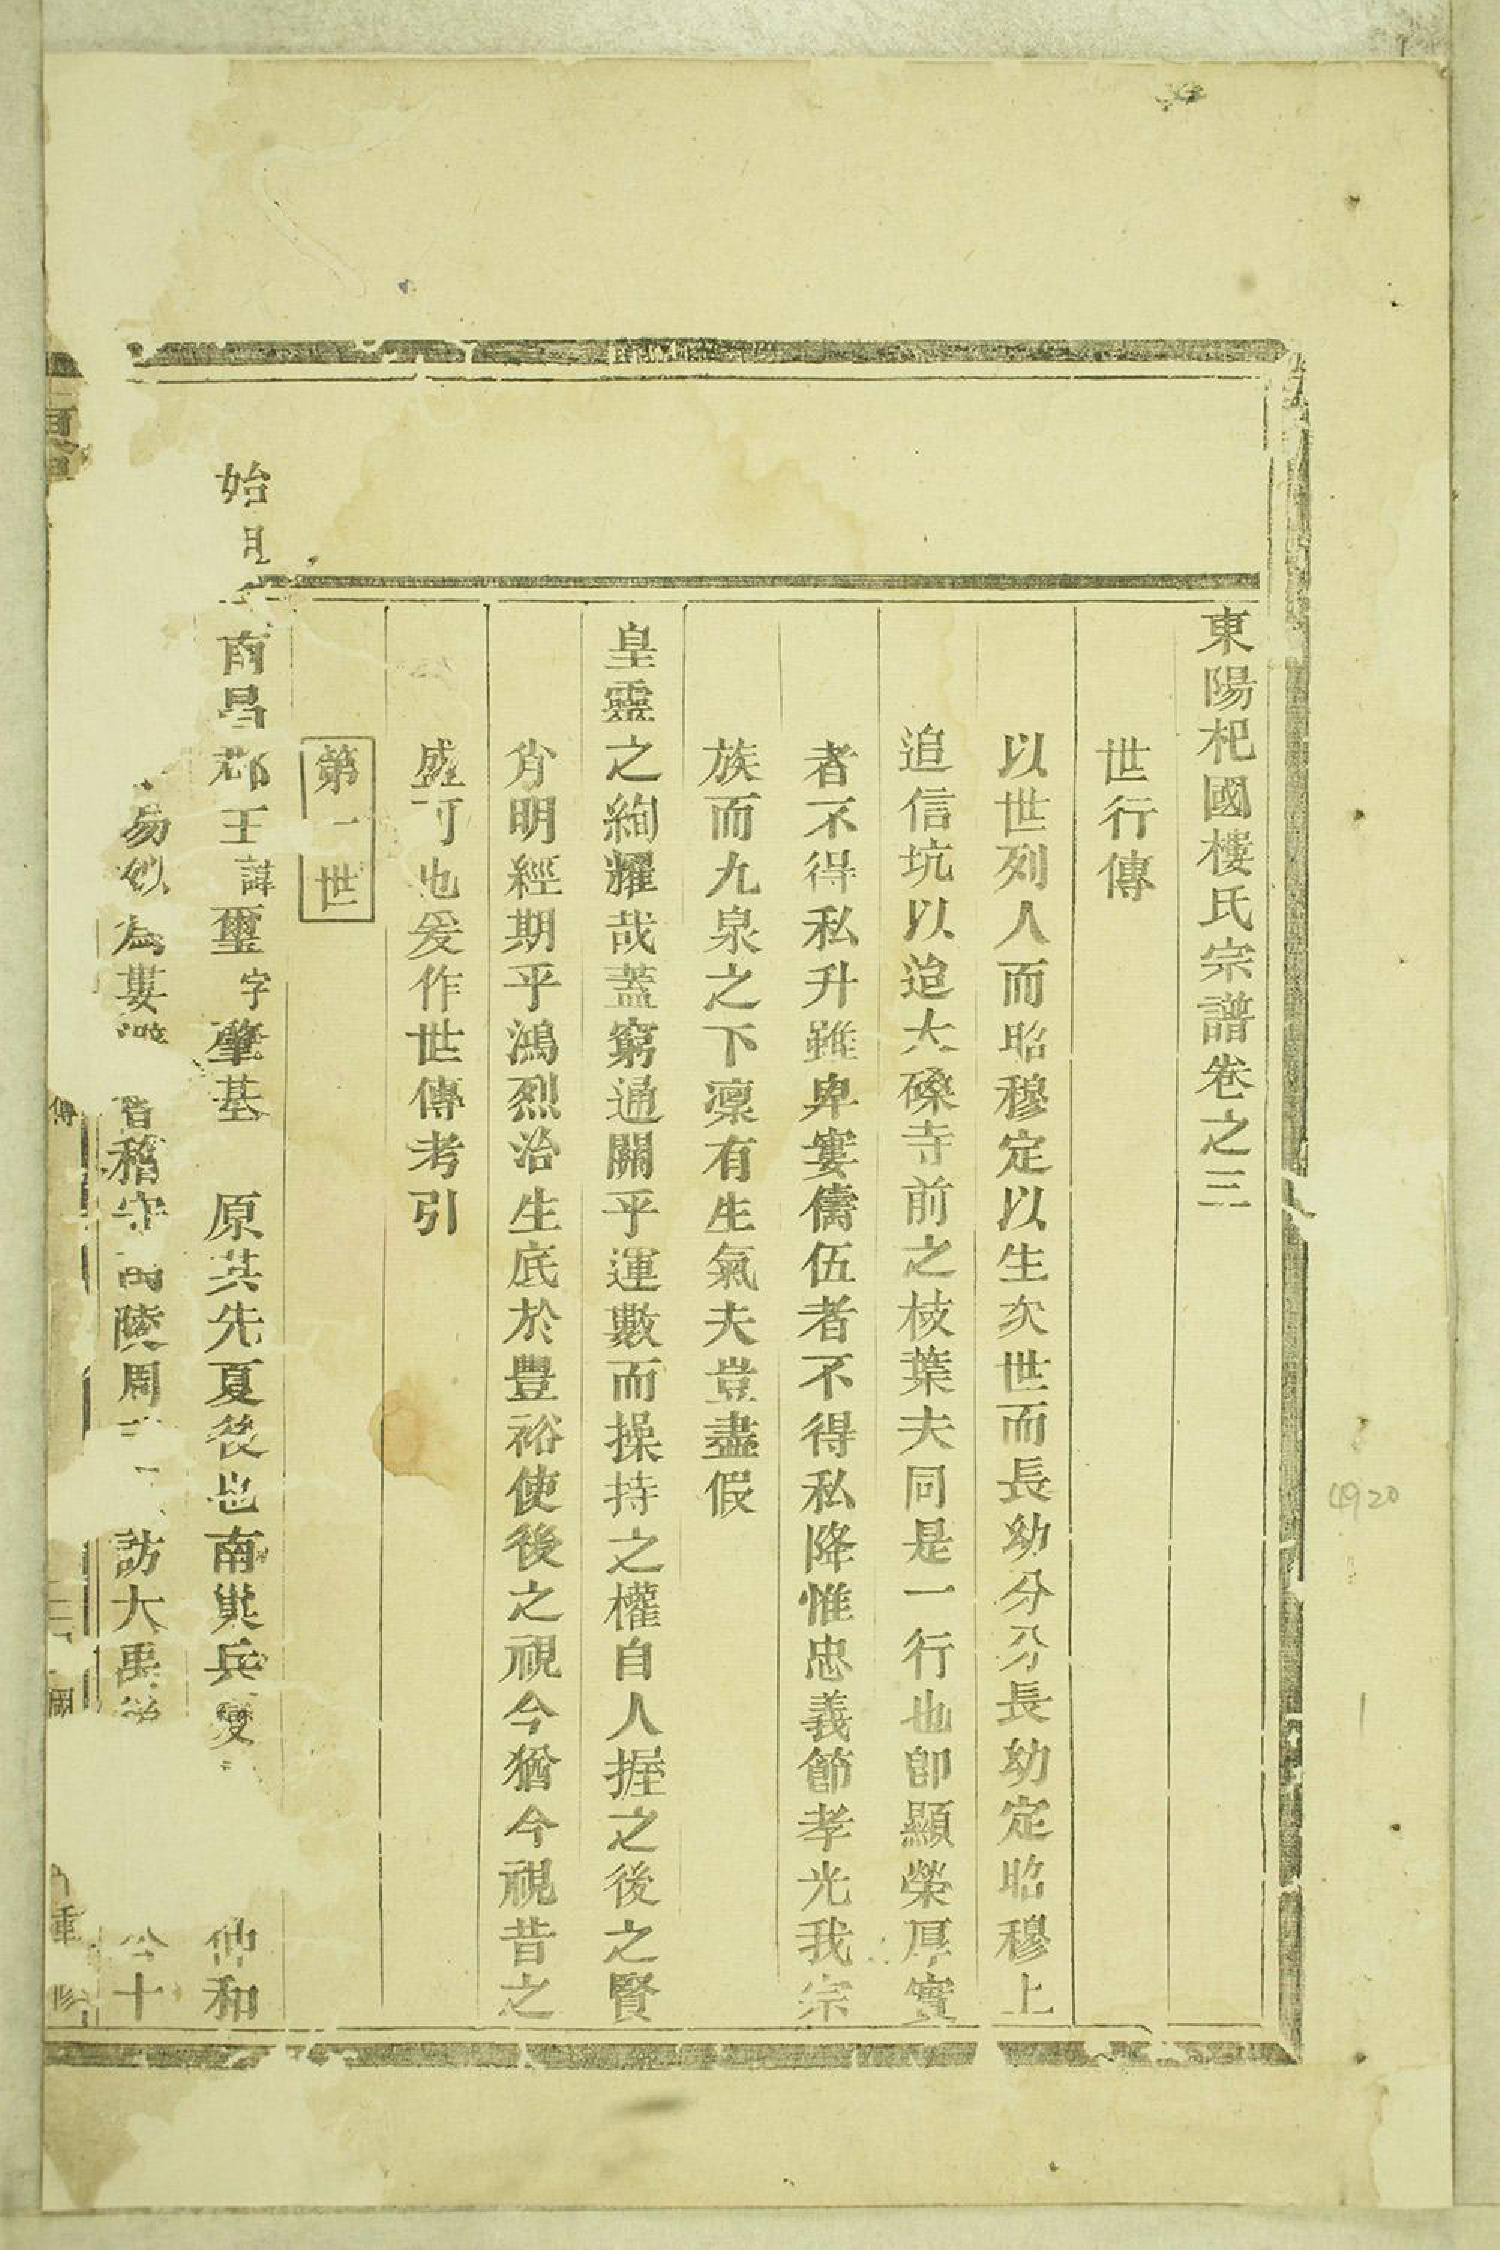 東陽杞國樓氏宗譜卷之三
世行傳
以世列人而昭穆定以生次世而長幼分分長幼定昭穆上
追信坑以迨大磉寺前之枝葉夫同是一行也卽顯榮厚實
者不得私升雖卑寠儔伍者不得私降惟忠義節孝光我宗
族而九泉之下凛有生氣夫豈盡假
皇靈之絢耀哉蓋窮通關乎運數而操持之權自人握之後之賢
肖明經期乎鴻烈治生底於豐裕使後之視今猶今視昔之
盛可也爰作世傳考引
第一世
始祖南昌郡王諱璽字肇基 原其先夏後也南巢兵變 仲和
易姒為婁 稽守禹陵周 訪大禹 公十
傳 國 重修
4920